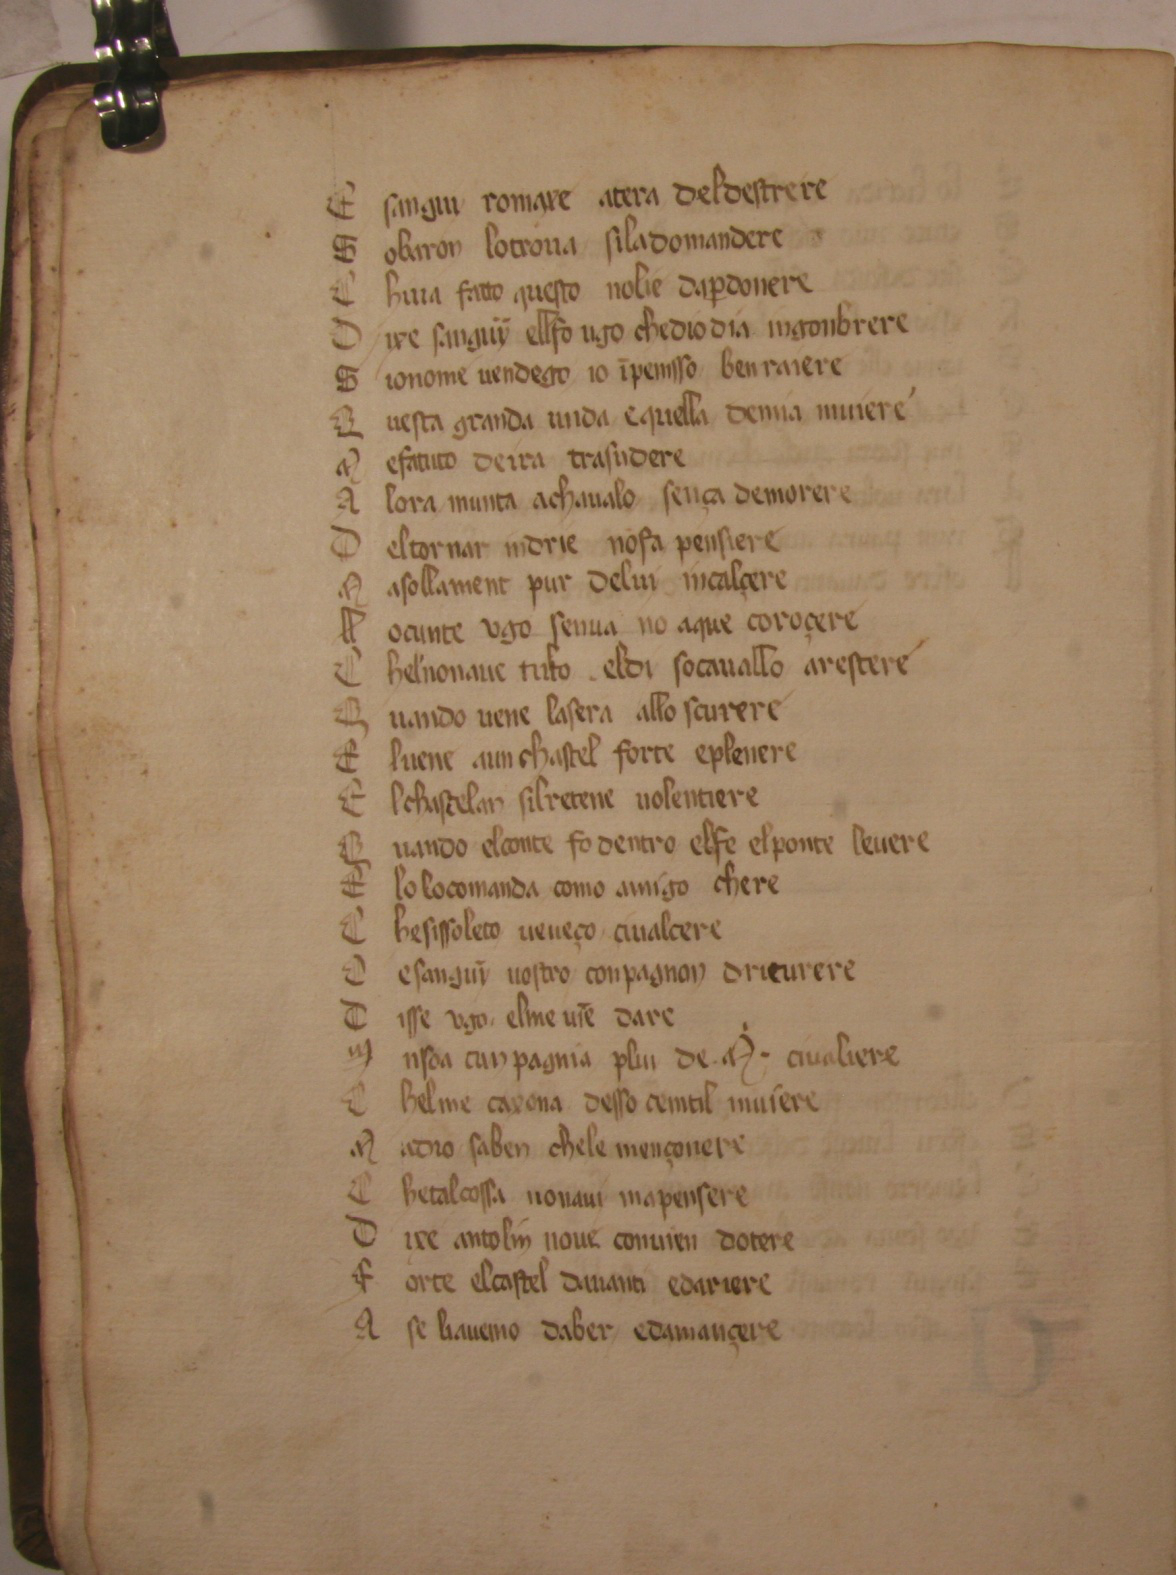 E sanguī romaxe atera deldestrere
S obaron lotroua siladomandere
C huia fatto questo nolie daꝑdonere
D ixe sanguī ellfo ugo chediodia ingonbrere
S ionome uendego io īpenisso ben raiere
Q uesta granda unda equella demia muiere
M efatuto deira trasudere
A lora munta achaualo sença demorere
D eltornar indrie nofa pensiere
M asollament pur delui incalçere
L ocunte vgo senua no aque coroçere
C helnonaue tuto eldi socauallo arestere
Q uando uene lasera allo scurere
E luene aun chastel forte eplenere
E lchastelan silretene uolentiere
Q uando elconte fo dentro elfe elponte leuere
E lo locomanda como amigo chere
C hesissoleto veueço ciualcere
O esanguī uostro conpagnon driturere
D isse vgo elme uīe dare
IN nsoa cunpagnia plui de .M. ciualiere
C helme caxona desso çentil muiere
M adio saben chele mençonere
C hetalcossa nonaui inapensere
D ixe antolin noue conuien dotere
F orte elcastel dauanti edariere
A se hauemo daber edamançere